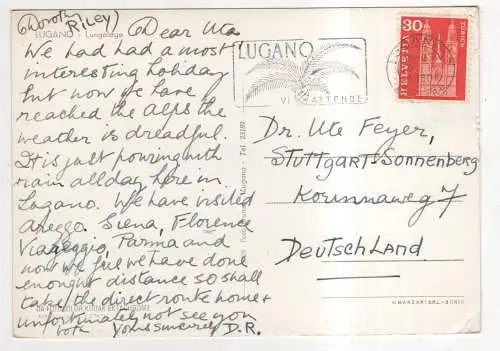 (Dorothy Riley)
LUGANO - Lungolago
Dear Uta
We had had a most
interesting holiday
but now we have
reached the Alps the
weather is dreadful.
It is just pouring with
rain all day here in
Lugano. We have visited
Arezzo Siena, Florence
Viareggio, Parma and
now we feel we have done
enought distance so shall
take the direct route home +
unfortunately not see you
both Yours sincerely D.R.
LUGANO
VI ATTENDE
30
HELVETIA
ZÜRICH
Dr. Ute Feyer,
Stuttgart-Sonnenberg
Korunnaweg 7
Deutschland
Lugano - Tel.